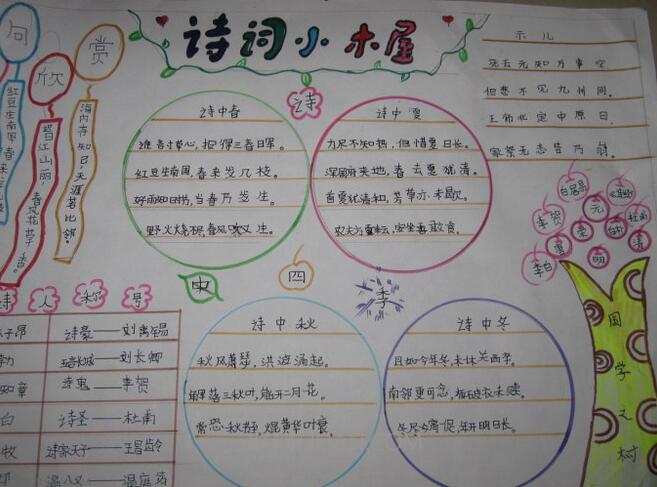 诗词小木屋
句
欣
赏
红豆生南国,春来
晋江山丽,春风花草香。
海内存知己,天涯若比邻。
诗中春
谁言寸草心,报得三春晖。
红豆生南国,春来发几枝。
好雨知时节,当春乃发生。
野火烧不尽,春风吹又生。
诗
诗中夏
力尽不知热,但惜夏日长。
深居俯夹地,春去夏犹清。
首夏犹清和,芳草亦未歇。
示儿
死去元知万事空
但悲不见九州同。
王师北定中原日,
家祭无忘告乃翁。
中
四
季
诗人称号
子昂
诗豪——刘禹锡
勃
五言长城——刘长卿
知章
诗鬼——李贺
白
诗圣——杜甫
牧
诗家天子——王昌龄
温八叉——温庭筠
诗中秋
秋风萧瑟,洪波涌起。
解落三秋叶,能开二月花。
常恐秋节至,焜黄华叶衰,
诗中冬
且如今年冬,未休关西卒。
南邻更可念,布破冬未赎。
冬尽今宵促,年开明日长。
李贺
元
杜甫
李白
唐
宋
明
清
国学文树